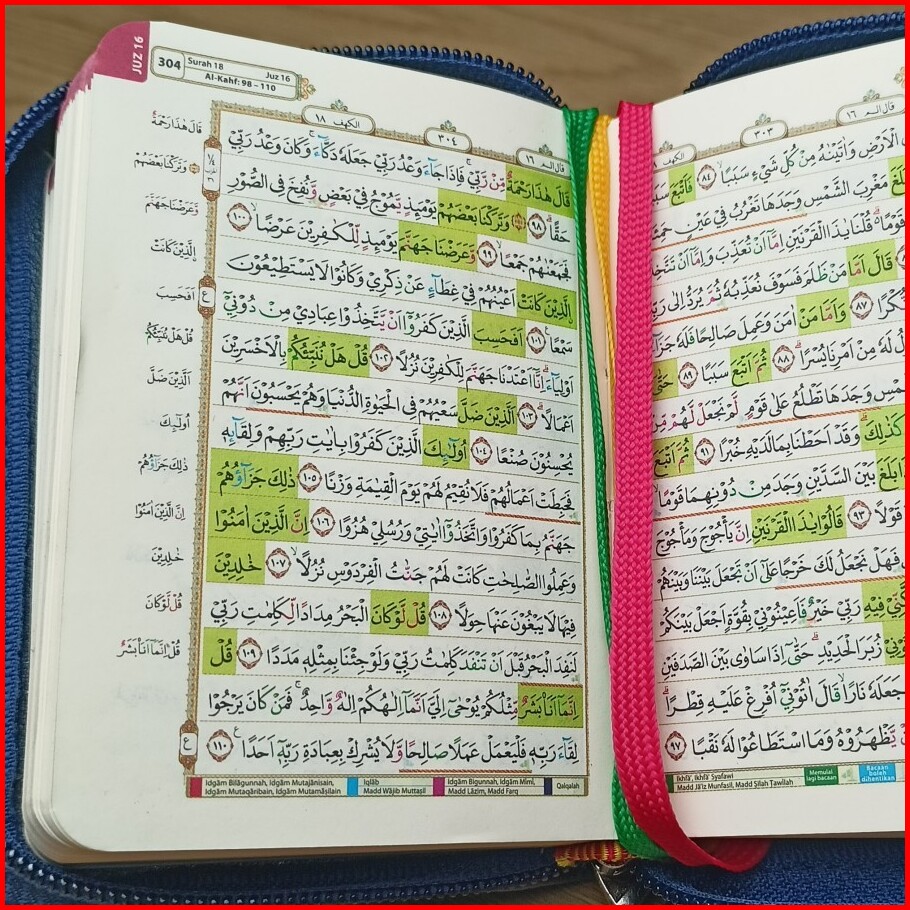 قال الـم ١٦
٣٠٣
الكهف
الْاَرْضِ وَاٰتَيْنٰهُ مِنْ كُلِّ شَيْءٍ سَبَبًا ۙ ٨٤ فَاَتْبَعَ
مَغْرِبَ الشَّمْسِ وَجَدَهَا تَغْرُبُ فِيْ عَيْنٍ
قَوْمًا ەۗ قُلْنَا يٰذَا الْقَرْنَيْنِ اِمَّآ اَنْ تُعَذِّبَ وَاِمَّآ اَنْ
قَالَ اَمَّا مَنْ ظَلَمَ فَسَوْفَ نُعَذِّبُهٗ ثُمَّ يُرَدُّ اِلٰى
نُّكْرًا ٨٧ وَاَمَّا مَنْ اٰمَنَ وَعَمِلَ صَالِحًا فَلَهٗ
لَهٗ مِنْ اَمْرِنَا يُسْرًا ۗ ٨٨ ثُمَّ اَتْبَعَ سَبَبًا ٨٩
وَجَدَهَا تَطْلُعُ عَلٰى قَوْمٍ لَّمْ نَجْعَلْ لَّهُمْ
كَذٰلِكَ ۗ وَقَدْ اَحَطْنَا بِمَا لَدَيْهِ خُبْرًا ٩١ ثُمَّ
بَلَغَ بَيْنَ السَّدَّيْنِ وَجَدَ مِنْ دُوْنِهِمَا قَوْمًا
قَوْلًا ٩٣ قَالُوْا يٰذَا الْقَرْنَيْنِ اِنَّ يَأْجُوْجَ وَمَأْجُوْجَ
فَهَلْ نَجْعَلُ لَكَ خَرْجًا عَلٰٓى اَنْ تَجْعَلَ بَيْنَنَا وَبَيْنَهُمْ
فِيْهِ رَبِّيْ خَيْرٌ فَاَعِيْنُوْنِيْ بِقُوَّةٍ اَجْعَلْ بَيْنَكُمْ
زُبَرَ الْحَدِيْدِ ۗ حَتّٰٓى اِذَا سَاوٰى بَيْنَ الصَّدَفَيْنِ
جَعَلَهٗ نَارًا ۙ قَالَ اٰتُوْنِيْٓ اُفْرِغْ عَلَيْهِ قِطْرًا ۗ
يَّظْهَرُوْهُ وَمَا اسْتَطَاعُوْا لَهٗ نَقْبًا ٩٧
Ikhfā', Ikhfā' Syafawi
Madd Jā'iz Munfaṣil, Madd Ṣilah Ṭawīlah
Memulai lagi bacaan
Bacaan boleh dihentikan
JUZ 16
304
Surah 18 Juz 16
Al-Kahf: 98 – 110
قال الـم ١٦
٣٠٤
الكهف ١٨
قَالَ هٰذَا رَحْمَةٌ مِّنْ رَّبِّيْۚ فَاِذَا جَاۤءَ وَعْدُ رَبِّيْ جَعَلَهٗ دَكَّاۤءَۚ وَكَانَ وَعْدُ رَبِّيْ
حَقًّا ۗ ٩٨ وَتَرَكْنَا بَعْضَهُمْ يَوْمَىِٕذٍ يَّمُوْجُ فِيْ بَعْضٍ وَّنُفِخَ فِى الصُّوْرِ
فَجَمَعْنٰهُمْ جَمْعًا ۙ ٩٩ وَّعَرَضْنَا جَهَنَّمَ يَوْمَىِٕذٍ لِّلْكٰفِرِيْنَ عَرْضًا ۙ ١٠٠
الَّذِيْنَ كَانَتْ اَعْيُنُهُمْ فِيْ غِطَاۤءٍ عَنْ ذِكْرِيْ وَكَانُوْا لَا يَسْتَطِيْعُوْنَ
سَمْعًا ١٠١ اَفَحَسِبَ الَّذِيْنَ كَفَرُوْٓا اَنْ يَّتَّخِذُوْا عِبَادِيْ مِنْ دُوْنِيْٓ
اَوْلِيَاۤءَ ۗ اِنَّآ اَعْتَدْنَا جَهَنَّمَ لِلْكٰفِرِيْنَ نُزُلًا ١٠٢ قُلْ هَلْ نُنَبِّئُكُمْ بِالْاَخْسَرِيْنَ
اَعْمَالًا ۗ ١٠٣ اَلَّذِيْنَ ضَلَّ سَعْيُهُمْ فِى الْحَيٰوةِ الدُّنْيَا وَهُمْ يَحْسَبُوْنَ اَنَّهُمْ
يُحْسِنُوْنَ صُنْعًا ١٠٤ اُولٰۤىِٕكَ الَّذِيْنَ كَفَرُوْا بِاٰيٰتِ رَبِّهِمْ وَلِقَاۤىِٕهٖ
فَحَبِطَتْ اَعْمَالُهُمْ فَلَا نُقِيْمُ لَهُمْ يَوْمَ الْقِيٰمَةِ وَزْنًا ١٠٥ ذٰلِكَ جَزَاۤؤُهُمْ
جَهَنَّمُ بِمَا كَفَرُوْا وَاتَّخَذُوْٓا اٰيٰتِيْ وَرُسُلِيْ هُزُوًا ١٠٦ اِنَّ الَّذِيْنَ اٰمَنُوْا
وَعَمِلُوا الصّٰلِحٰتِ كَانَتْ لَهُمْ جَنّٰتُ الْفِرْدَوْسِ نُزُلًا ۙ ١٠٧ خٰلِدِيْنَ
فِيْهَا لَا يَبْغُوْنَ عَنْهَا حِوَلًا ١٠٨ قُلْ لَّوْ كَانَ الْبَحْرُ مِدَادًا لِّكَلِمٰتِ رَبِّيْ
لَنَفِدَ الْبَحْرُ قَبْلَ اَنْ تَنْفَدَ كَلِمٰتُ رَبِّيْ وَلَوْ جِئْنَا بِمِثْلِهٖ مَدَدًا ١٠٩ قُلْ
اِنَّمَآ اَنَا۠ بَشَرٌ مِّثْلُكُمْ يُوْحٰٓى اِلَيَّ اَنَّمَآ اِلٰهُكُمْ اِلٰهٌ وَّاحِدٌ ۚ فَمَنْ كَانَ يَرْجُوْا
لِقَاۤءَ رَبِّهٖ فَلْيَعْمَلْ عَمَلًا صَالِحًا وَّلَا يُشْرِكْ بِعِبَادَةِ رَبِّهٖٓ اَحَدًا ࣖ ١١٠
قَالَ هٰذَا رَحْمَةٌ
وَتَرَكْنَا بَعْضَهُمْ
وَعَرَضْنَا جَهَنَّمَ
اَلَّذِيْنَ كَانَتْ
اَفَحَسِبَ
قُلْ هَلْ نُنَبِّئُكُمْ
اَلَّذِيْنَ ضَلَّ
اُولٰۤىِٕكَ
ذٰلِكَ جَزَاۤؤُهُمْ
اِنَّ الَّذِيْنَ اٰمَنُوْا
خٰلِدِيْنَ
قُلْ لَّوْ كَانَ
قُلْ اِنَّمَآ اَنَا۠ بَشَرٌ
Idgām Bilāgunnah, Idgām Mutajānisain,
Idgām Mutaqāribain, Idgām Mutamāṡilain
Iqlāb
Madd Wājib Muttaṣil
Idgām Bigunnah, Idgām Mīmī,
Madd Lāzim, Madd Farq
Qalqalah